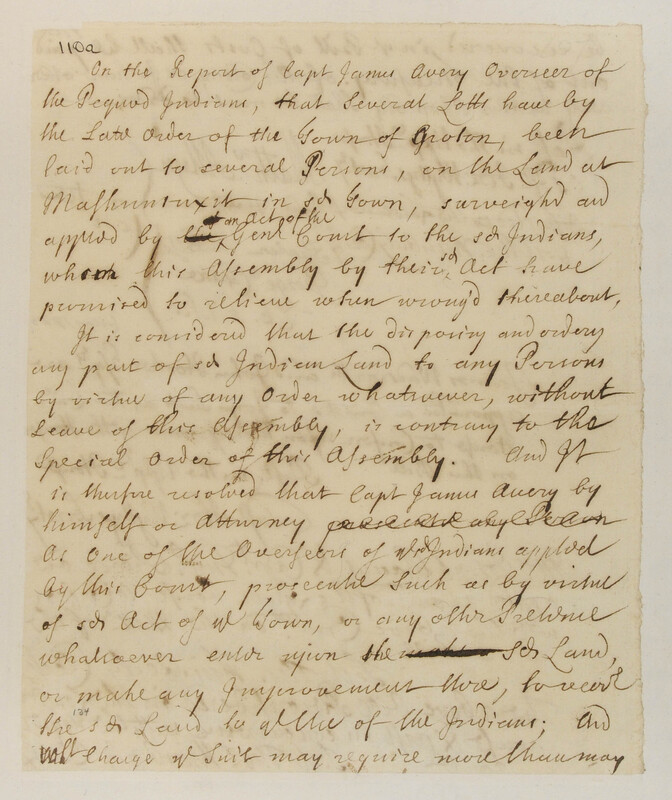 110a
On the Report of Capt James Avery Overseer of
the Pequod Indians, that Several Lotts have by
the Late Order of the Town of Groton, been
laid out to several Persons, on the Land at
Mashuntuxit in sd Town, surveighd and
an Act of the
applied by the Genl Court to the sd Indians,
which this Assembly by their sd Act have
promised to relieve when wrong'd thereabout,
It is considered that the disposing and ordering
any part of sd Indian Land to any Persons
by virtue of any Order whatsoever, without
Leave of this Assembly, is contrary to the
Special Order of this Assembly. And It
is therfore resolved that Capt James Avery by
himself or Atturney prosecute any Person
As One of the Overseers of ye sd Indians applied
by this Court, prosecute Such as by virtue
of sd Act of ye Town, or any other Pretense
whatsoever enter upon the sd Land,
or make any Improvement there, to recovr
184
the sd Land to ye Use of the Indians; And
wt Charge ye Suit may require more than may